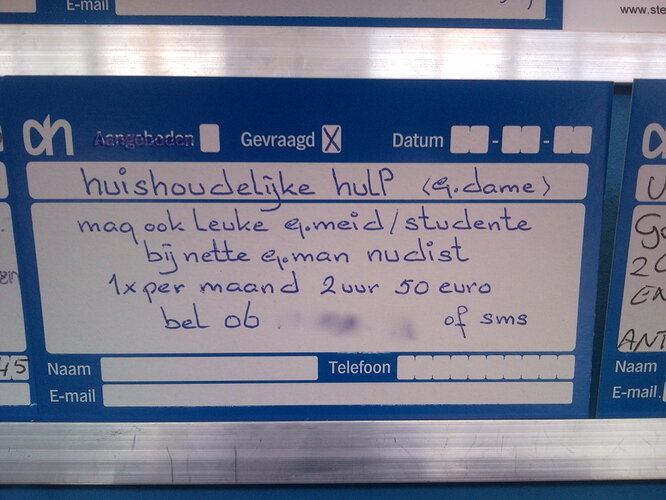 E-mail
www.ste
ah Aangeboden Gevraagd X Datum - -
huishoudelijke hulp (g.dame)
mag ook leuke g.meid/studente
bij nette g.man nudist
1x per maand 2 uur 50 euro
bel 06 of sms
Naam Telefoon
E-mail
45
Naam
E-mail